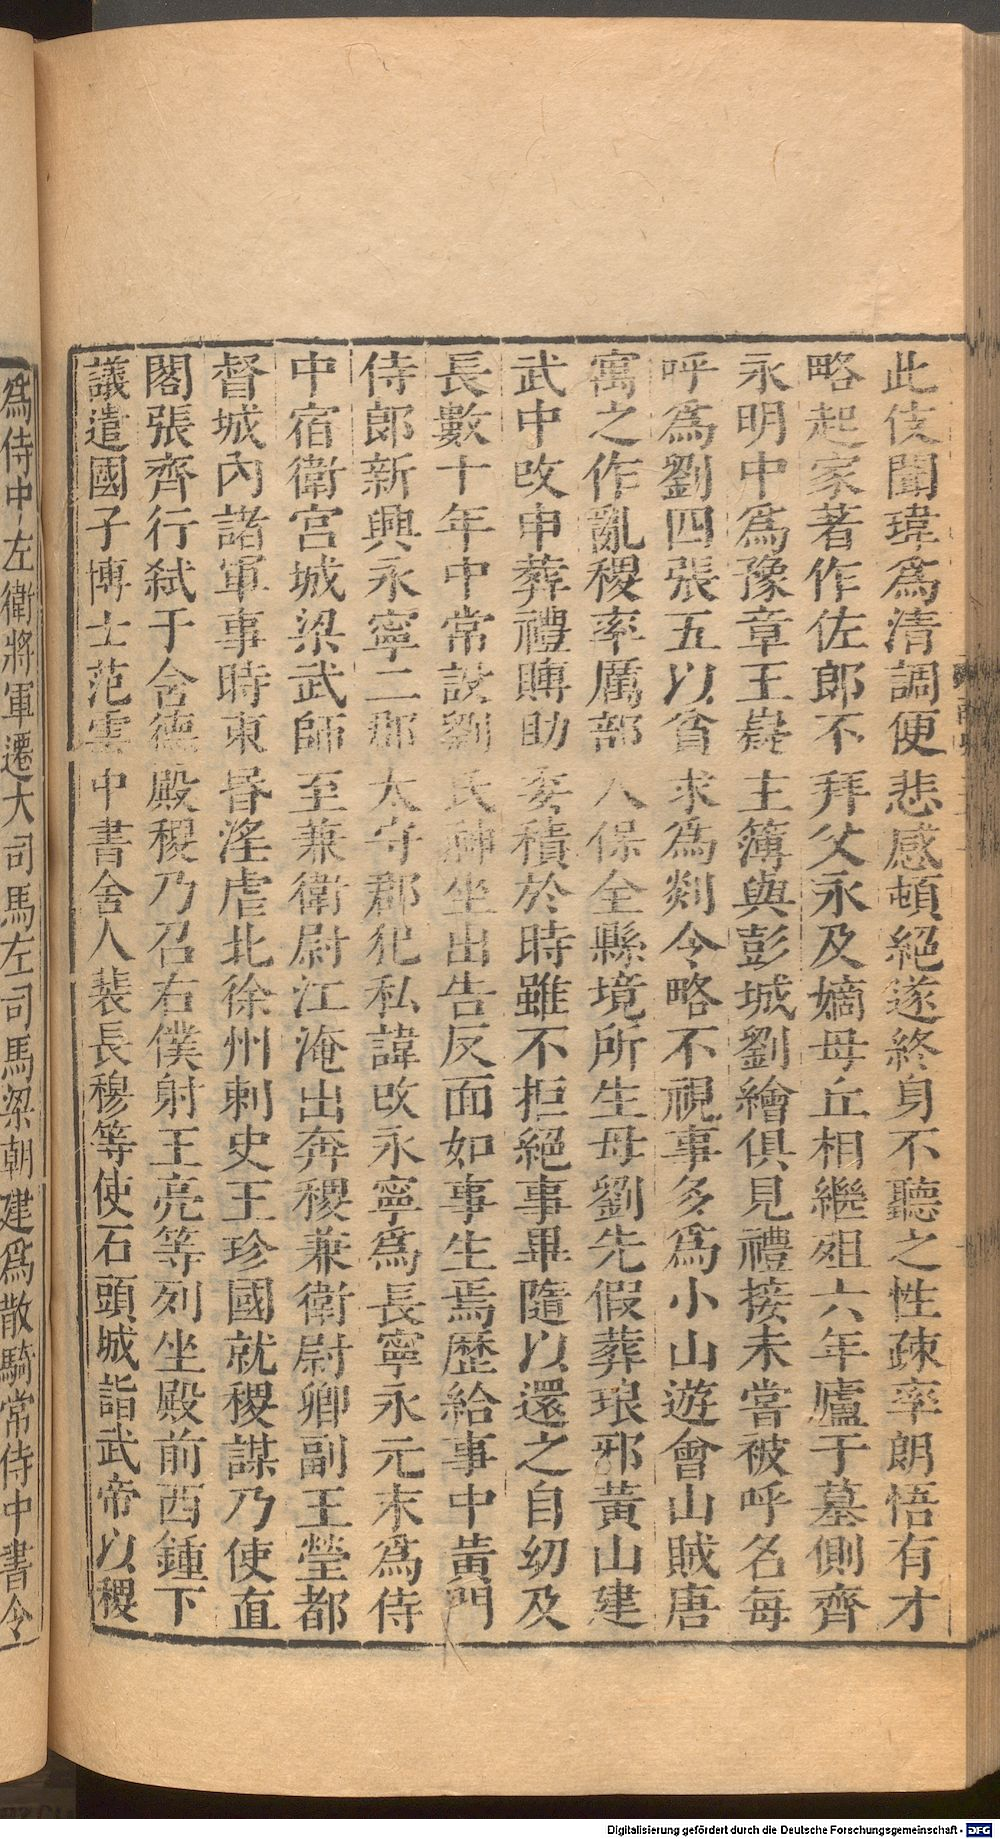 此伎聞瑋爲清調便悲感頓絕遂終身不聽之性疎率朗悟有才
略起家著作佐郎不拜父永及嫡母丘相繼殂六年廬于墓側齊
永明中爲豫章王嶷主簿與彭城劉繪俱見禮接未嘗被呼名每
呼爲劉四張五以貧求爲剡令略不視事多爲小山遊會山賊唐
寓之作亂稷率厲部人保全縣境所生母劉先假葬琅邪黃山建
武中改申葬禮賻助委積於時雖不拒絕事畢隨以還之自幼及
長數十年中常設劉氏神坐出告反面如事生焉歷給事中黃門
侍郎新興永寧二郡太守郡犯私諱改永寧爲長寧永元末爲侍
中宿衛宮城梁武師至兼衛尉江淹出奔稷兼衛尉卿副王瑩都
督城內諸軍事時東昏淫虐北徐州刺史王珍國就稷謀乃使直
閣張齊行弑于含德殿稷乃召右僕射王亮等列坐殿前西鍾下
議遣國子博士范雲中書舍人裴長穆等使石頭城詣武帝以稷
爲侍中左衛將軍遷大司馬左司馬梁朝建爲散騎常侍中書令
Digitalisierung gefördert durch die Deutsche Forschungsgemeinschaft - DFG